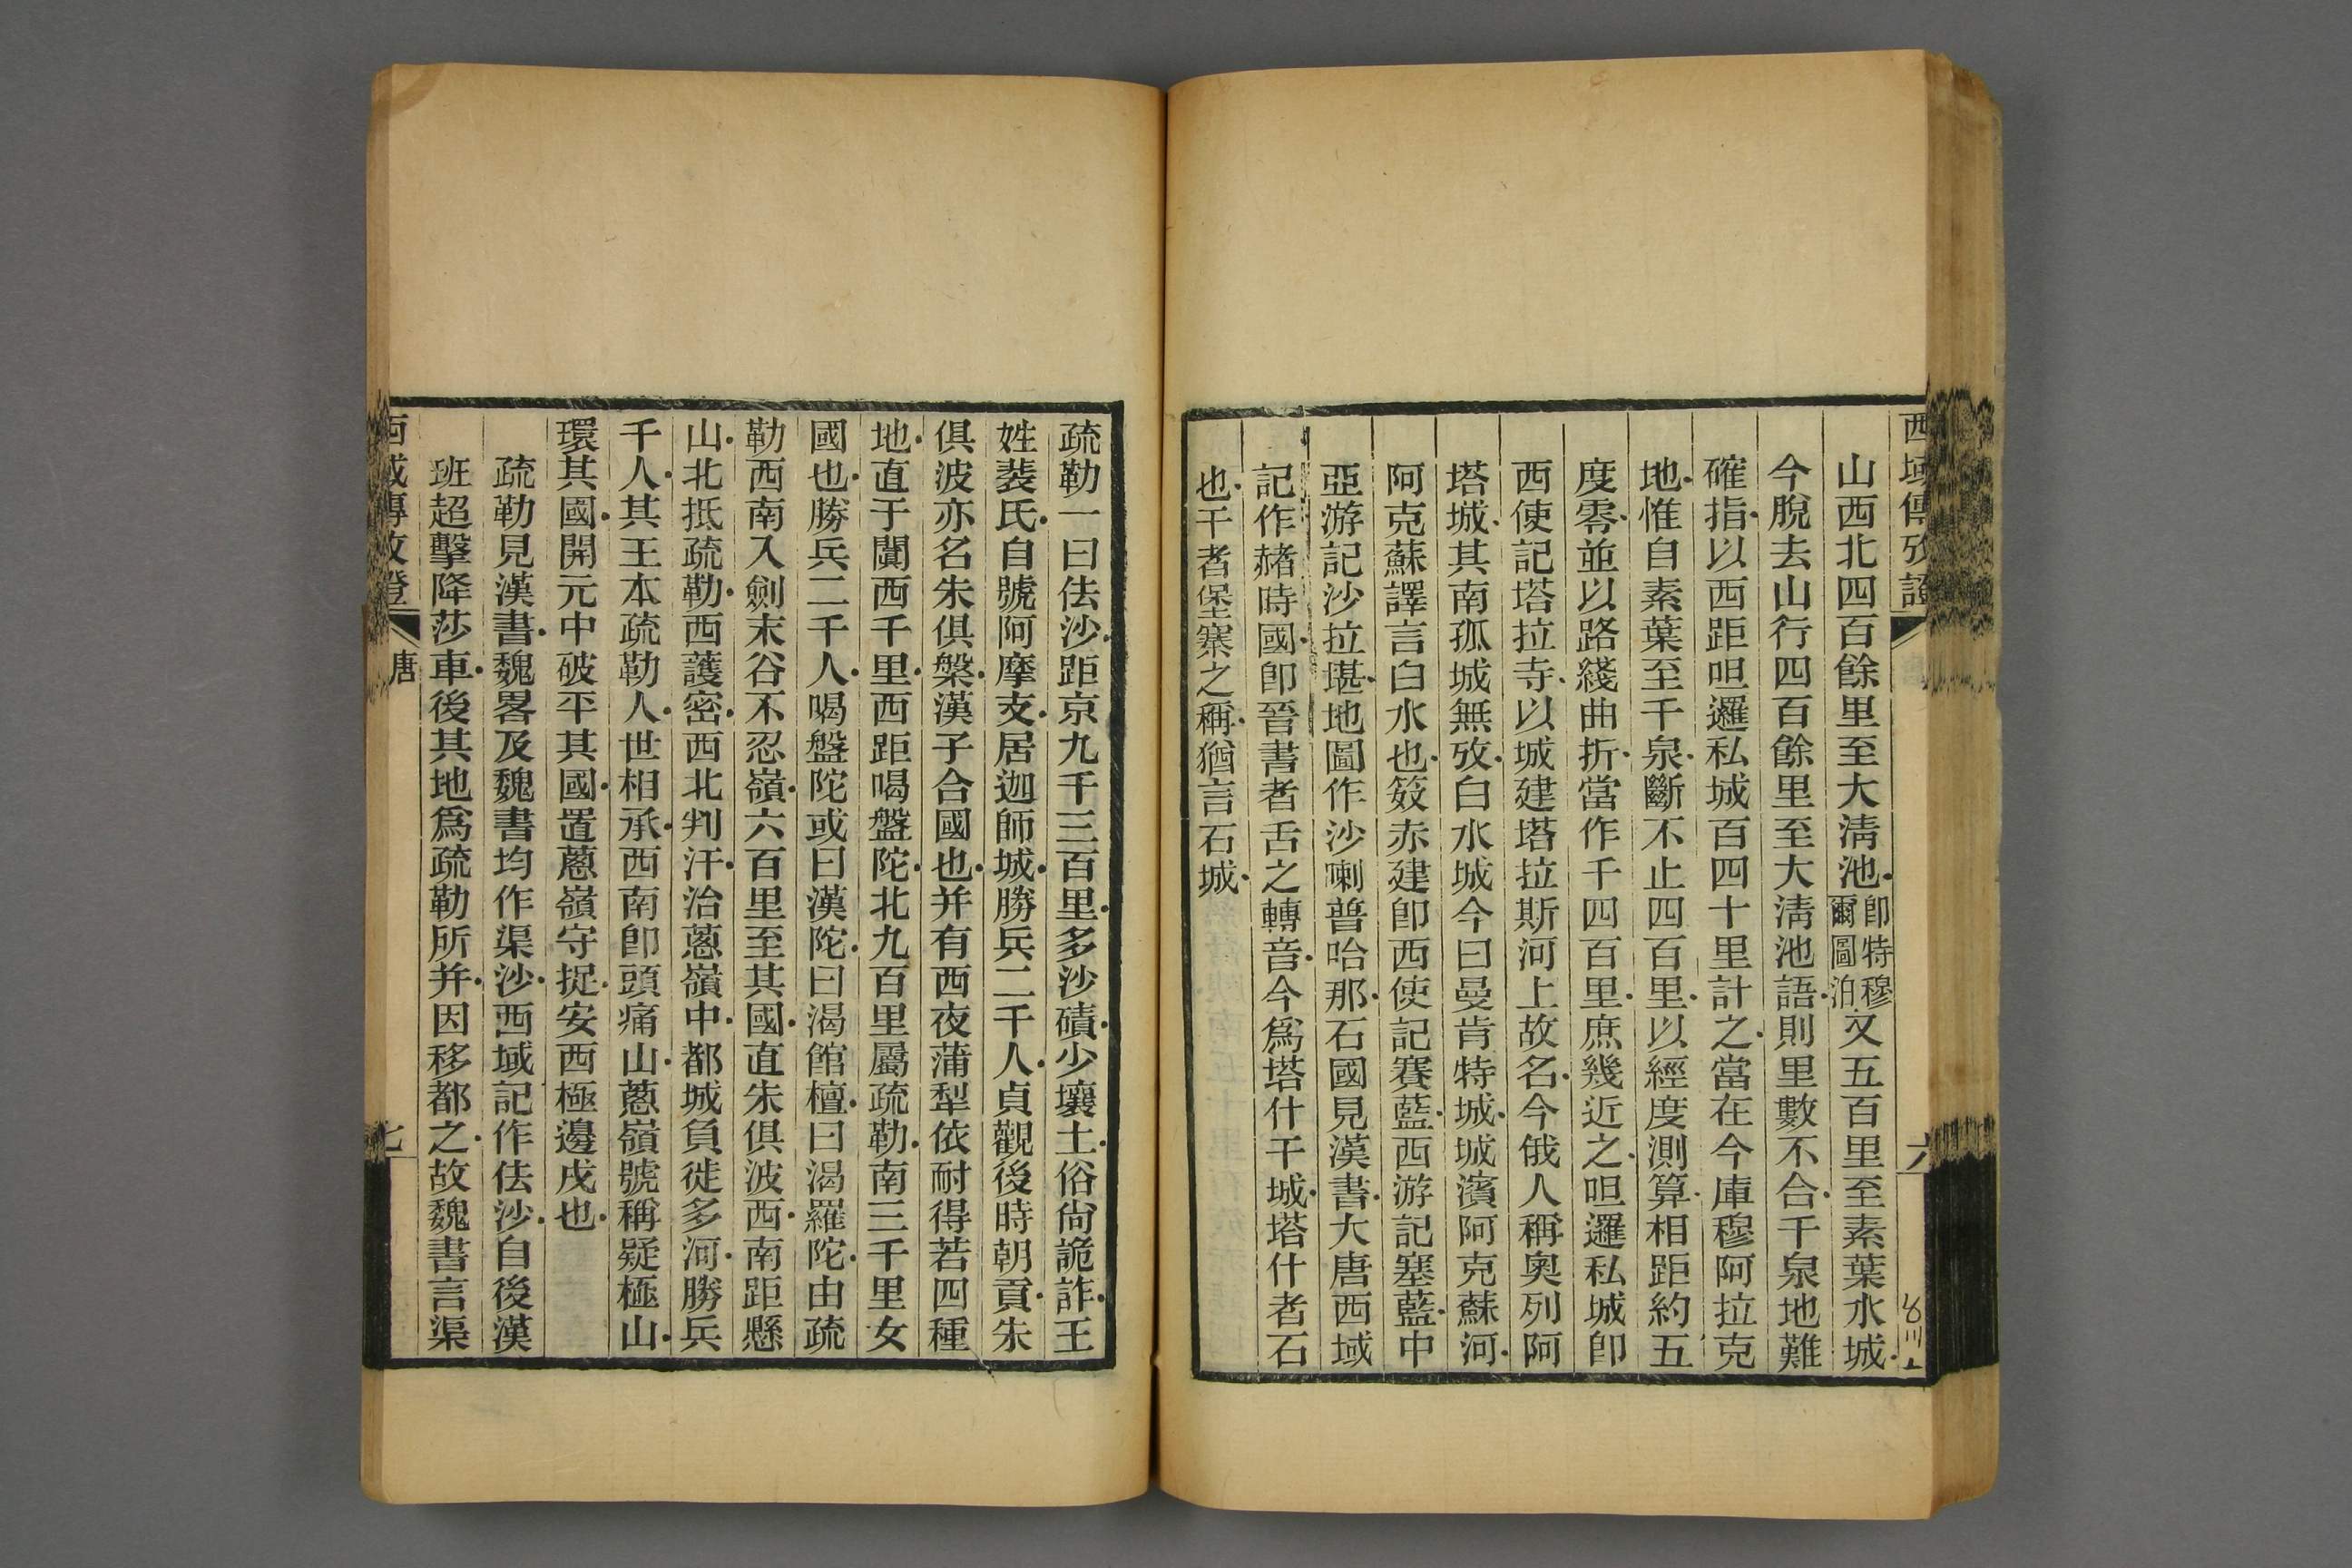 西域傳攷證
六
山西北四百餘里至大淸池卽特穆爾圖泊又五百里至素葉水城
今脫去山行四百餘里至大淸池語則里數不合千泉地難
確指以西距呾邏私城百四十里計之當在今庫穆阿拉克
地惟自素葉至千泉斷不止四百里以經度測算相距約五
度零並以路綫曲折當作千四百里庶幾近之呾邏私城卽
西使記塔拉寺以城建塔拉斯河上故名今俄人稱奧列阿
塔城其南孤城無攷白水城今曰曼肯特城城濱阿克蘇河
阿克蘇譯言白水也笯赤建卽西使記賽藍西游記塞藍中
亞游記沙拉堪地圖作沙喇普哈那石國見漢書大唐西域
記作赭時國卽晉書者舌之轉音今爲塔什干城塔什者石
也干者堡寨之稱猶言石城
疏勒一曰佉沙距京九千三百里多沙磧少壤土俗尙詭詐王
姓裴氏自號阿摩支居迦師城勝兵二千人貞觀後時朝貢朱
俱波亦名朱俱槃漢子合國也并有西夜蒲犁依耐得若四種
地直于闐西千里西距喝盤陀北九百里屬疏勒南三千里女
國也勝兵二千人喝盤陀或曰漢陀曰渴館檀曰渴羅陀由疏
勒西南入劍末谷不忍嶺六百里至其國直朱俱波西南距懸
山北抵疏勒西護密西北判汗治蔥嶺中都城負徙多河勝兵
千人其王本疏勒人世相承西南卽頭痛山蔥嶺號稱疑極山
環其國開元中破平其國置蔥嶺守捉安西極邊戍也
疏勒見漢書魏畧及魏書均作渠沙西域記作佉沙自後漢
班超擊降莎車後其地爲疏勒所并因移都之故魏書言渠
西域傳攷證
唐
七